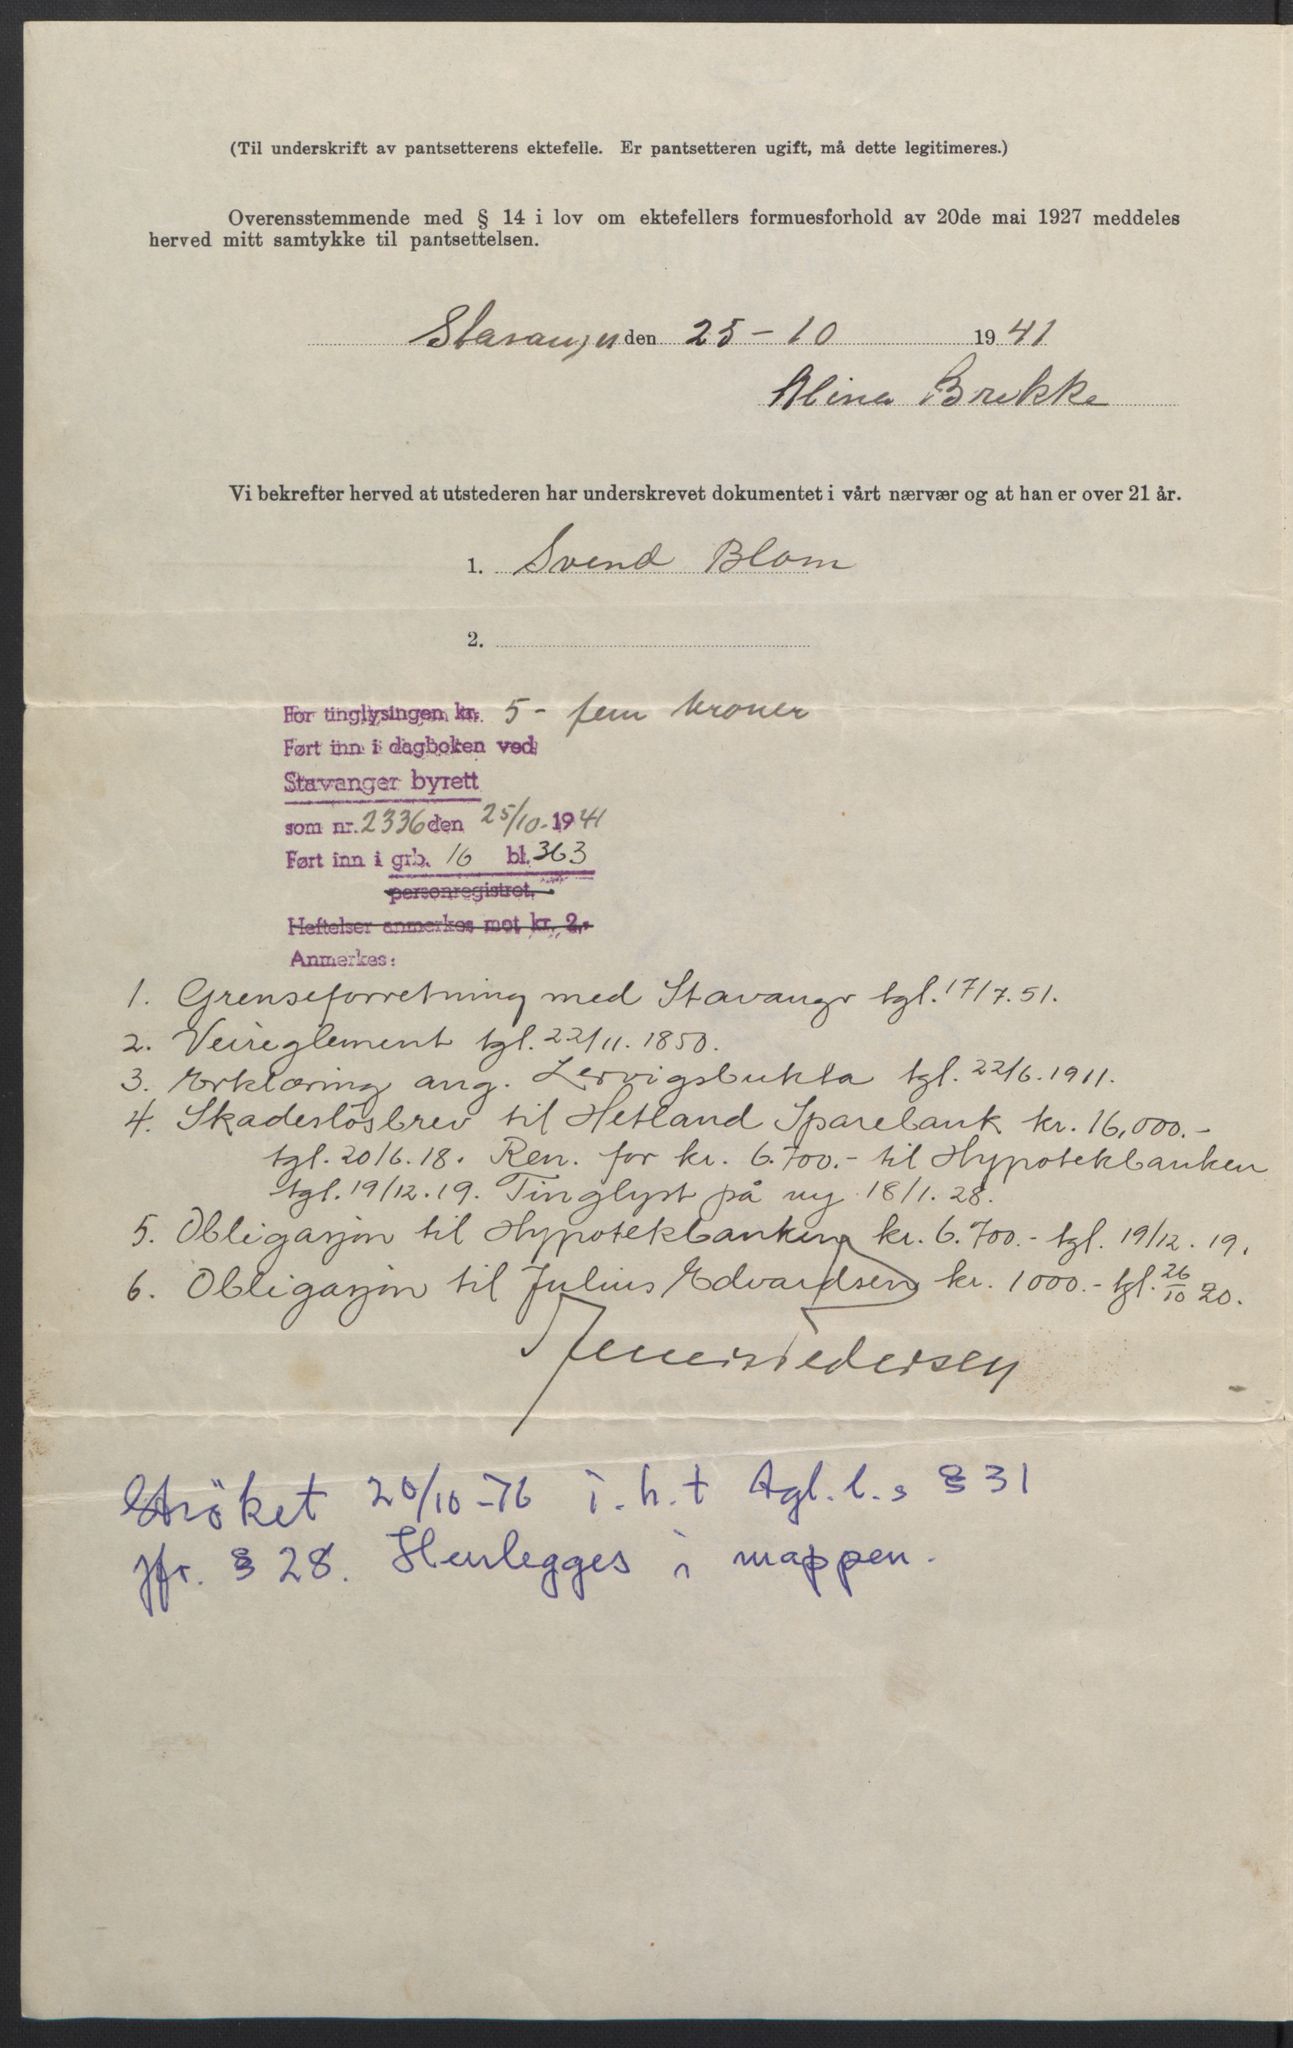 (Til underskrift av pantsetterens ektefelle. Er pantsetteren ugift, må dette legitimeres.)
Overensstemmende med § 14 i lov om ektefellers formuesforhold av 20de mai 1927 meddeles
herved mitt samtykke til pantsettelsen.
Stavanger den 25-10 1941
Alina Brekke
Vi bekrefter herved at utstederen har underskrevet dokumentet i vårt nærvær og at han er over 21 år.
1. Svend Blom
2.
For tinglysingen kr. 5- fem kroner
Ført inn i dagboken ved
Stavanger byrett
som nr. 2336 den 25/10-1941
Ført inn i grb. 16 bl. 363
personregistret.
Heftelser anmerkes mot kr. 2,-
Anmerkes:
1. Grenseforretning med Stavanger tgl. 17/7. 51.
2. Veireglement tgl. 22/11. 1850.
3. Erklæring ang. Lervigsbukta tgl. 22/6. 1911.
4. Skadesløsbrev til Hetland Sparebank kr. 16,000.-
tgl. 20/6. 18. Ren. for kr. 6.700.- til Hypotekbanken
tgl. 19/12. 19. Tinglyst på ny 18/1. 28.
5. Obligasjon til Hypotekbanken kr. 6.700.- tgl. 19/12. 19.
6. Obligasjon til Julius Edvardsen kr. 1000.- tgl. 26/10 20.
Pedersen
Strøket 20/10-76 i.h.t tgl.l.s § 31
jfr. § 28. Henlegges i mappen.